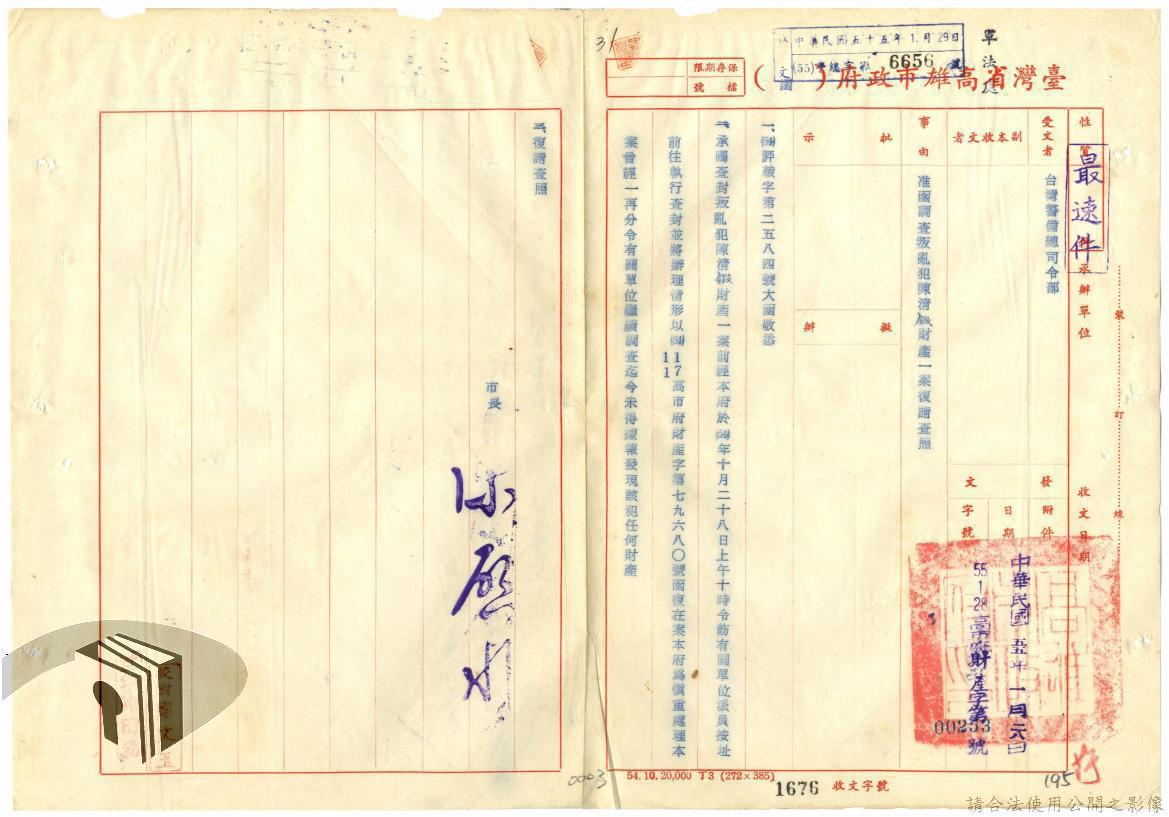 臺灣省高雄市政府( )
保存期限
檔號
中華民國五十五年1.月29日
6656
軍法處
31
最速件
性質
承辦單位
收文日期
受文者
台灣警備總司令部
發
附件
副本收文者
文
日期
字號
中華民國五五年一月廿八日
55 1 28
高市府財產字第00253號
事由
准函調查叛亂犯陳清 財產一案復請查照
批示
擬辦
一、 評積字第二五八四號大函敬悉
二、承囑查封叛亂犯陳清 財產一案前經本府於 年十月二十八日上午十時令飭有關單位派員按址
前往執行查封並將辦理情形以 11 17高市府財產字第七九六八〇號函復在案本府為慎重處理本
案曾經一再分令有關單位繼續調查迄今未得據報發現該犯任何財產
三、復請查照
市長
陳啟川
裝訂線
54.10.20,000 丁3 (272×385)
1676
收文字號
0003
195
請合法使用公開之影像